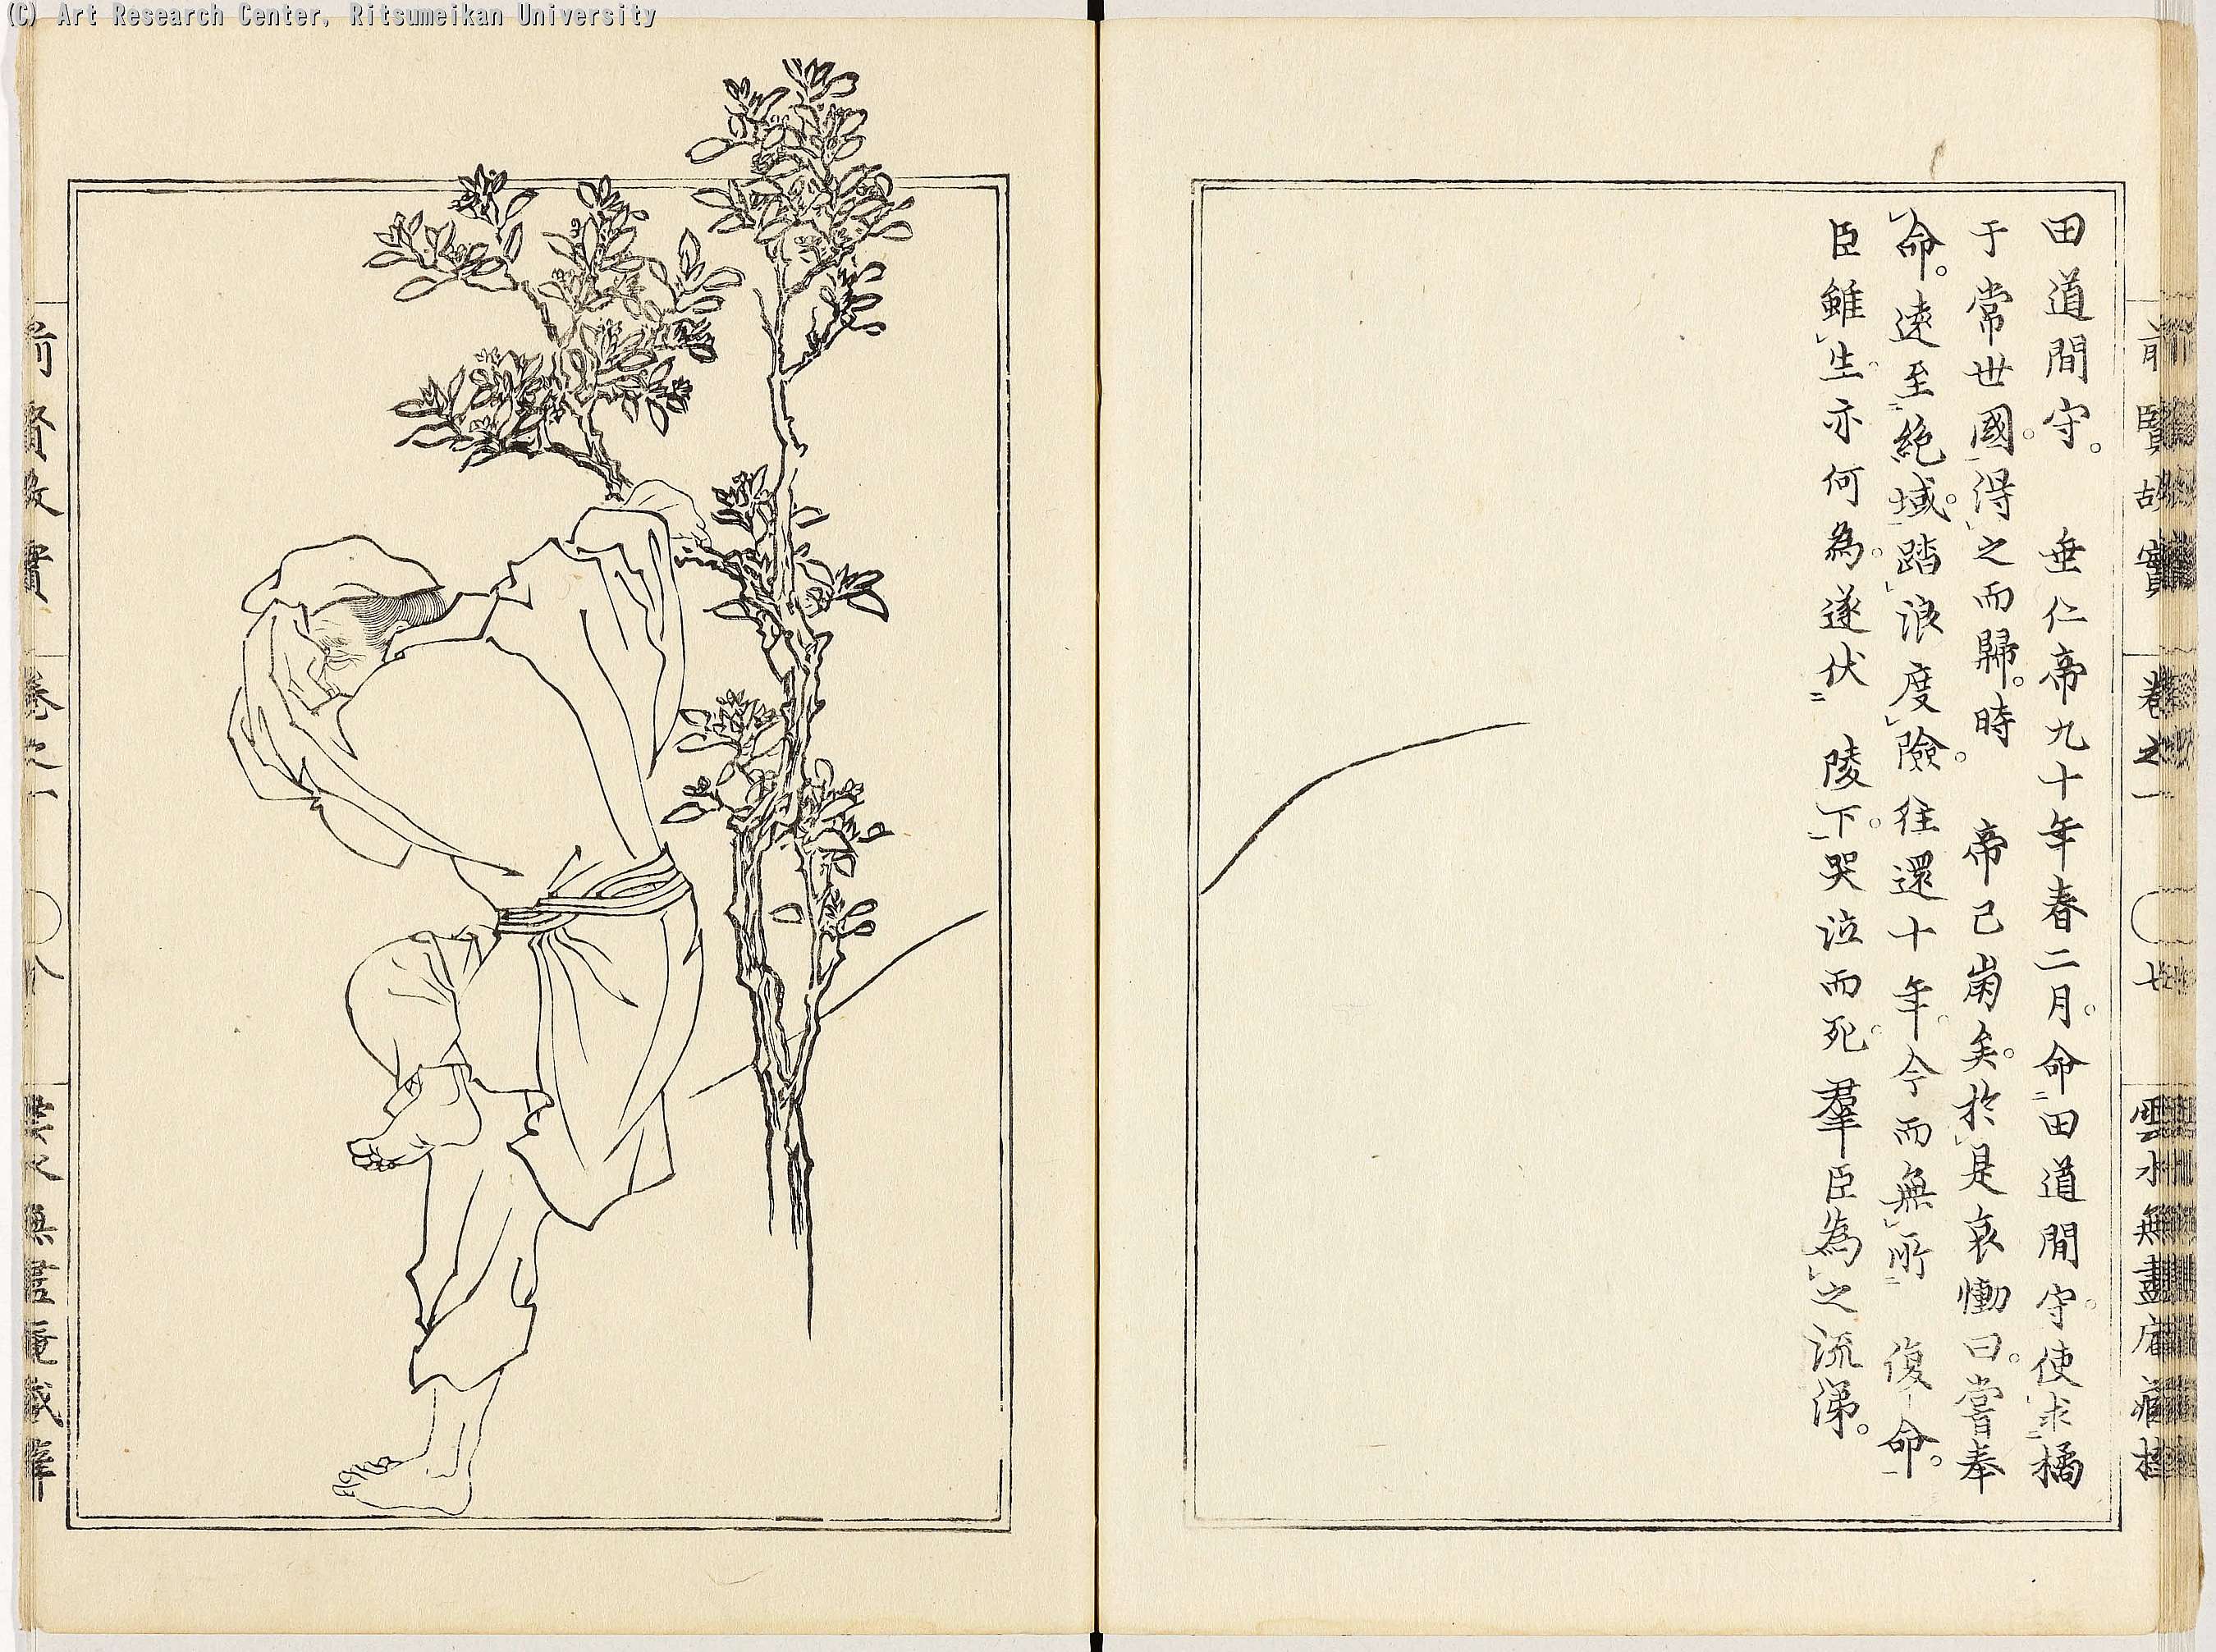 (C) Art Research Center, Ritsumeikan University
前賢故實 卷之一 ○七 雲水無盡庵藏
田道間守。 垂仁帝九十年春二月。命田道間守。使求橘
于常世國。得之而歸。時 帝已崩矣。於是哀慟曰。嘗奉
命。遠至絶域。踏浪度險。往還十年。今而無所 復命。
臣雖生。亦何為。遂伏 陵下。哭泣而死。羣臣為之流涕。
前賢故實 卷之一 ○八 雲水無盡庵藏